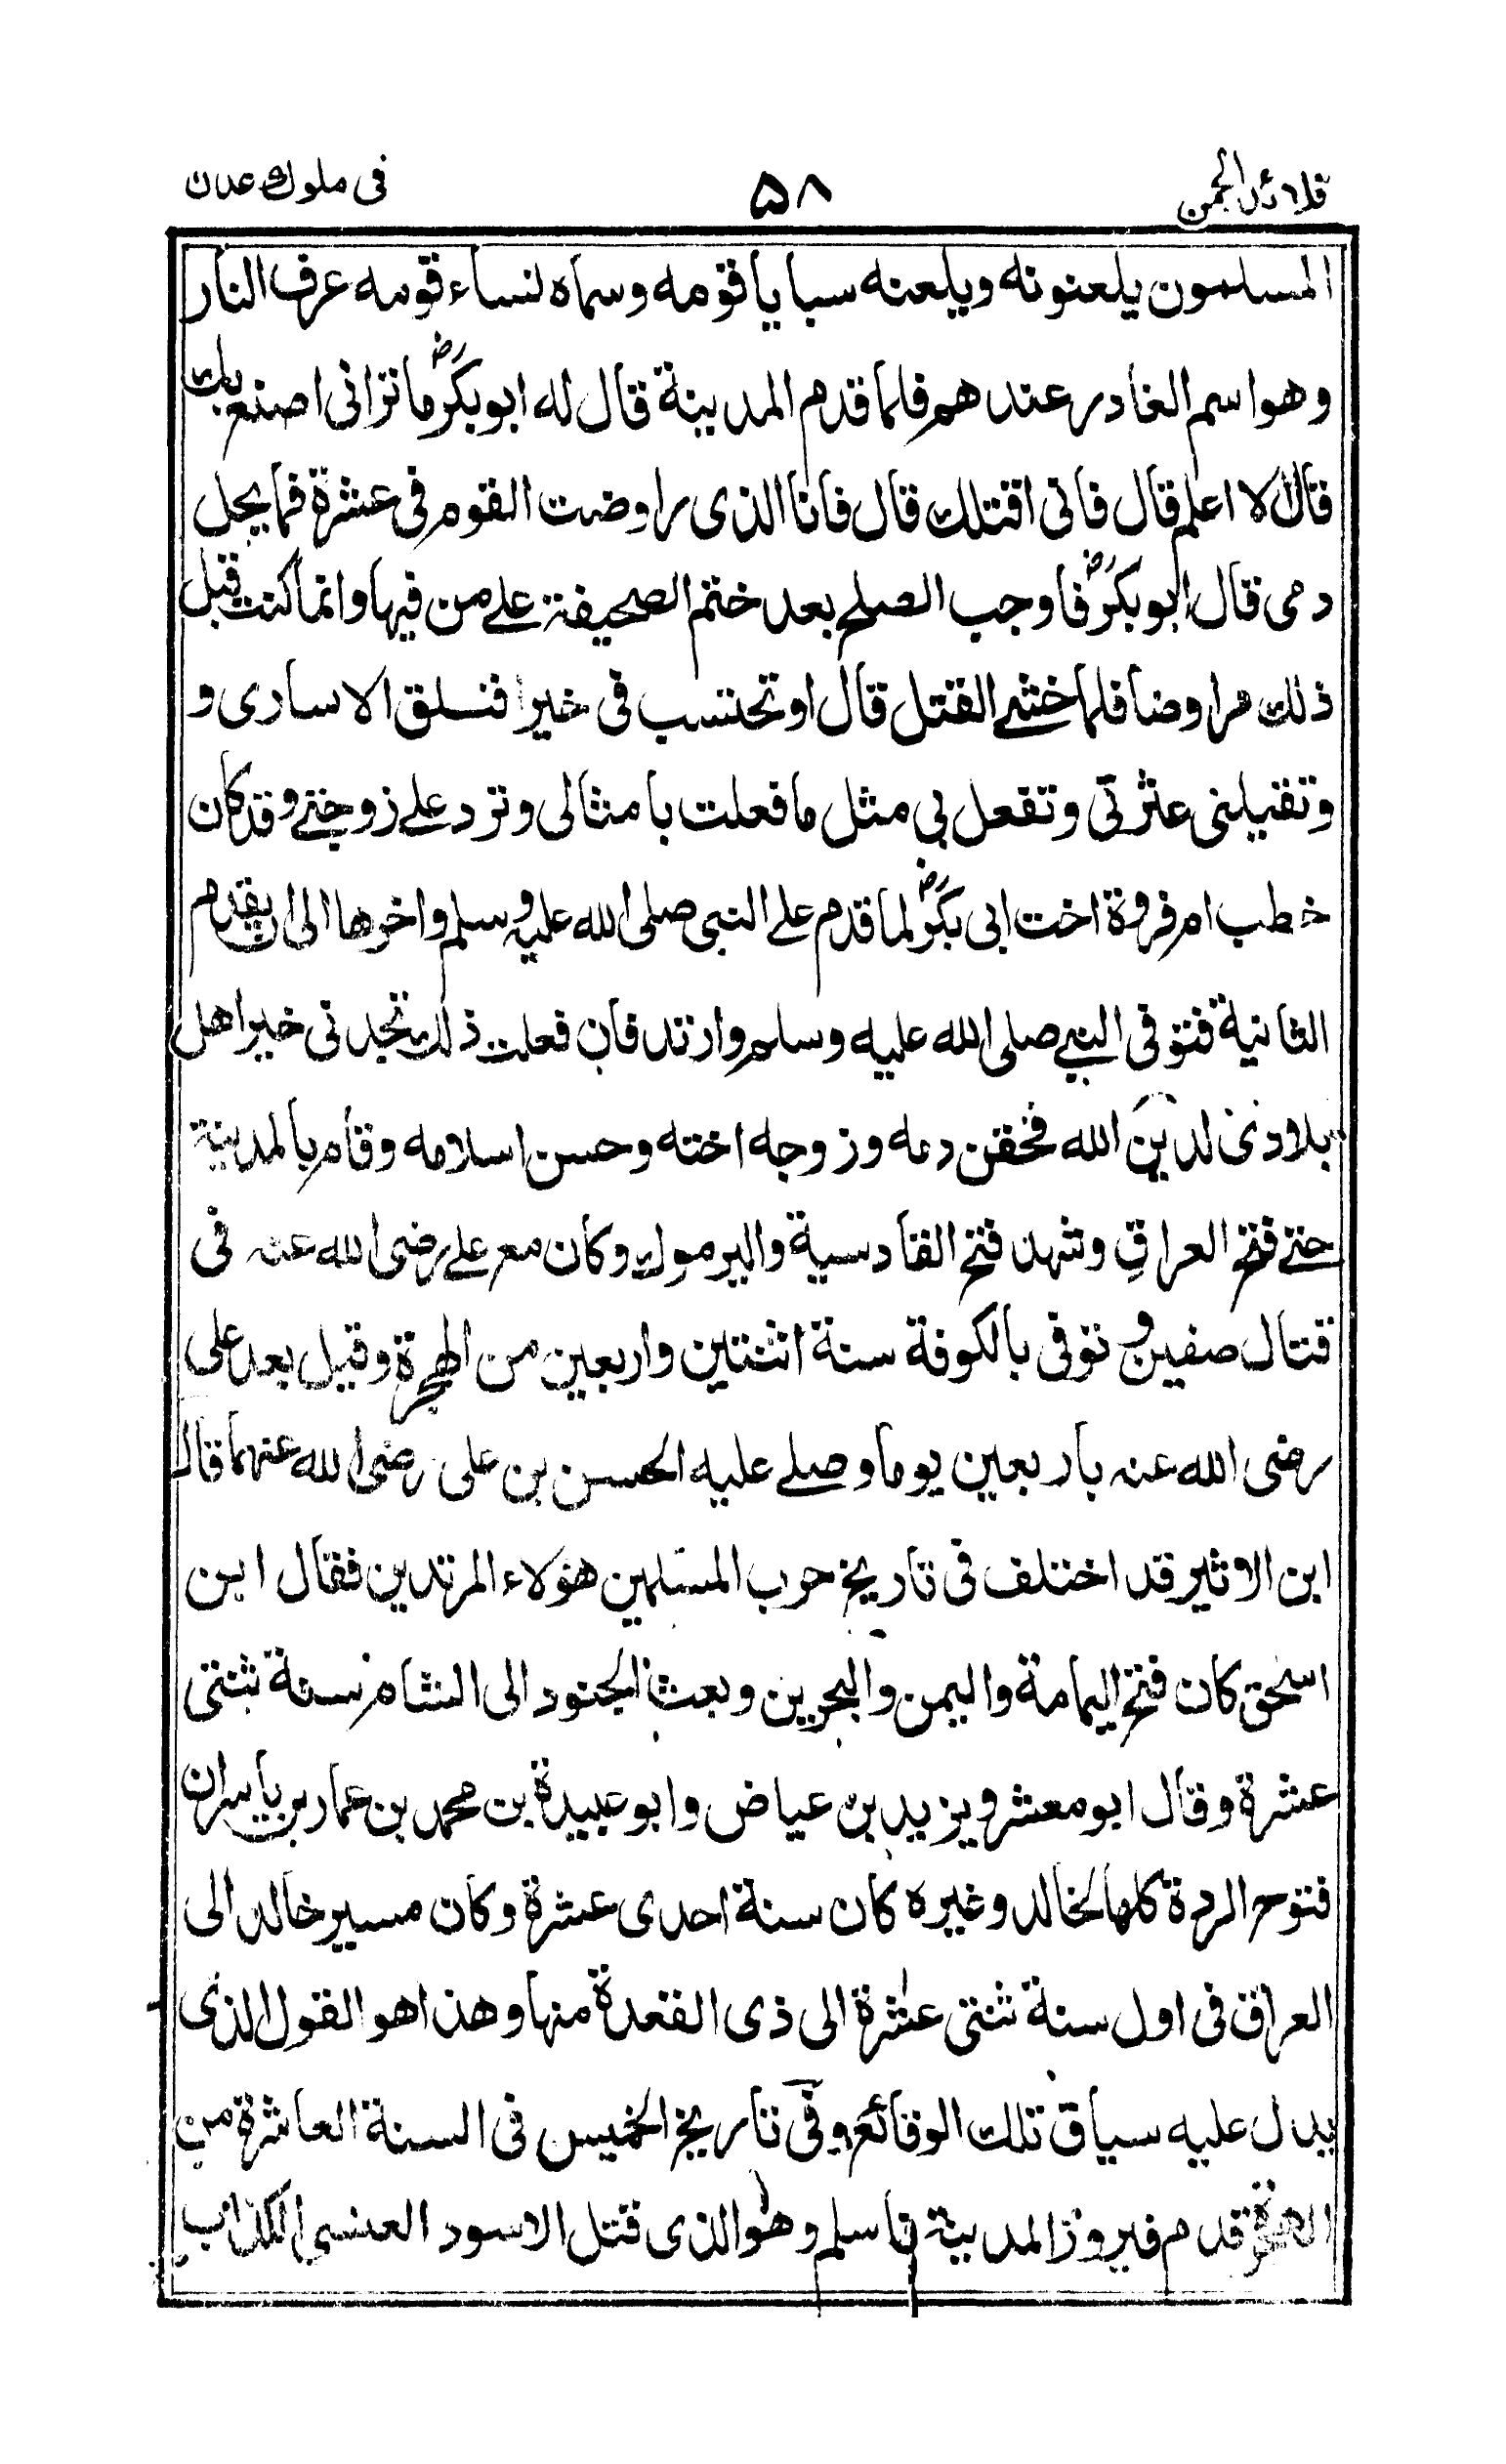 قلائد الجمن ٥٨ فى ملوك عدن
المسلمون يلعنونه ويلعنه سبايا قومه وسماه نساء قومه عرف النار
وهو اسم الغادر عندهم فلما قدم المدينة قال له ابوبكرؓ ما ترانى اصنع بك
قال لا اعلم قال فانى اقتلك قال فانا الذى راوضت القوم فى عشرة فما يحل
دمى قال ابوبكرؓ فاوجب الصلح بعد ختم الصحيفة على من فيها وانما كنت قبل
ذلك مراوضا فلما خشى القتل قال او تحتسب فى خيرا فتسلق الاسارى و
وتقيلنى عثرتى وتفعل بى مثل ما فعلت بامثالى وترد على زوجتى وقد كان
خطب ام فروة اخت ابى بكرؓ لما قدم على النبى صلى الله عليه وسلم واخرها الى ان يقدم
الثانية فتوفى النبى صلى الله عليه وسلم وارتد فان فعلت ذلك تجدنى خير اهل
بلادى لدين الله فحقن دمه وزوجه اخته وحسن اسلامه وقام بالمدينة
حتى فتح العراق وشهد فتح القادسية واليرموك وكان مع على رضى الله عنه فى
قتال صفين و توفى بالكوفة سنة اثنتين واربعين من الهجرة وقيل بعد على
رضى الله عنه باربعين يوما وصلى عليه الحسن بن على رضى الله عنهما قال
ابن الاثير قد اختلف فى تاريخ حرب المسلمين هؤلاء المرتدين فقال ابن
اسحق كان فتح اليمامة واليمن والبحرين وبعث الجنود الى الشام سنة ثنتى
عشرة وقال ابو معشر ويزيد بن عياض وابو عبيدة بن محمد بن عمار بن ياسر ان
فتوح الردة كلها لخالد وغيره كان سنة احدى عشرة وكان مسير خالد الى
العراق فى اول سنة ثنتى عشرة الى ذى القعدة منها وهذا هو القول الذى
يدل عليه سياق تلك الوقائع وفى تاريخ الخميس فى السنة العاشرة من
الهجرة قدم فيروز المدينة فاسلم وهو الذى قتل الاسود العنسى الكذاب